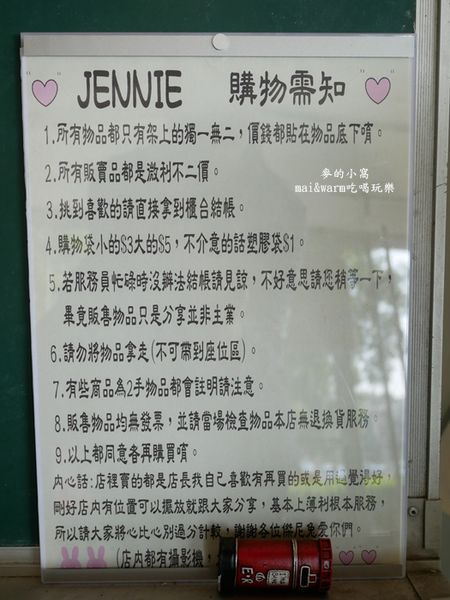 JENNIE 購物需知
1.所有物品都只有架上的獨一無二，價錢都貼在物品底下唷。
2.所有販賣品都是激利不二價。
麥的小窩
mai&warm吃喝玩樂
3.挑到喜歡的請直接拿到櫃台結帳。
4.購物袋小的$3大的$5，不介意的話塑膠袋$1。
5.若服務員忙碌時沒辦法結帳請見諒，不好意思請您稍等一下，
畢竟販售物品只是分享並非主業。
6.請勿將物品拿走(不可帶到座位區)。
7.有些商品為2手物品都會註明請注意。
8.販售物品均無發票，並請當場檢查物品本店無退換貨服務。
9.以上都同意各再購買唷。
內心話:店裡賣的都是店長我自己喜歡有再買的或是用過覺得好，
剛好店內有位置可以擺放就跟大家分享，基本上薄利根本服務，
所以請大家將心比心別過分計較，謝謝各位傑尼兔愛你們。
(店內都有攝影機，